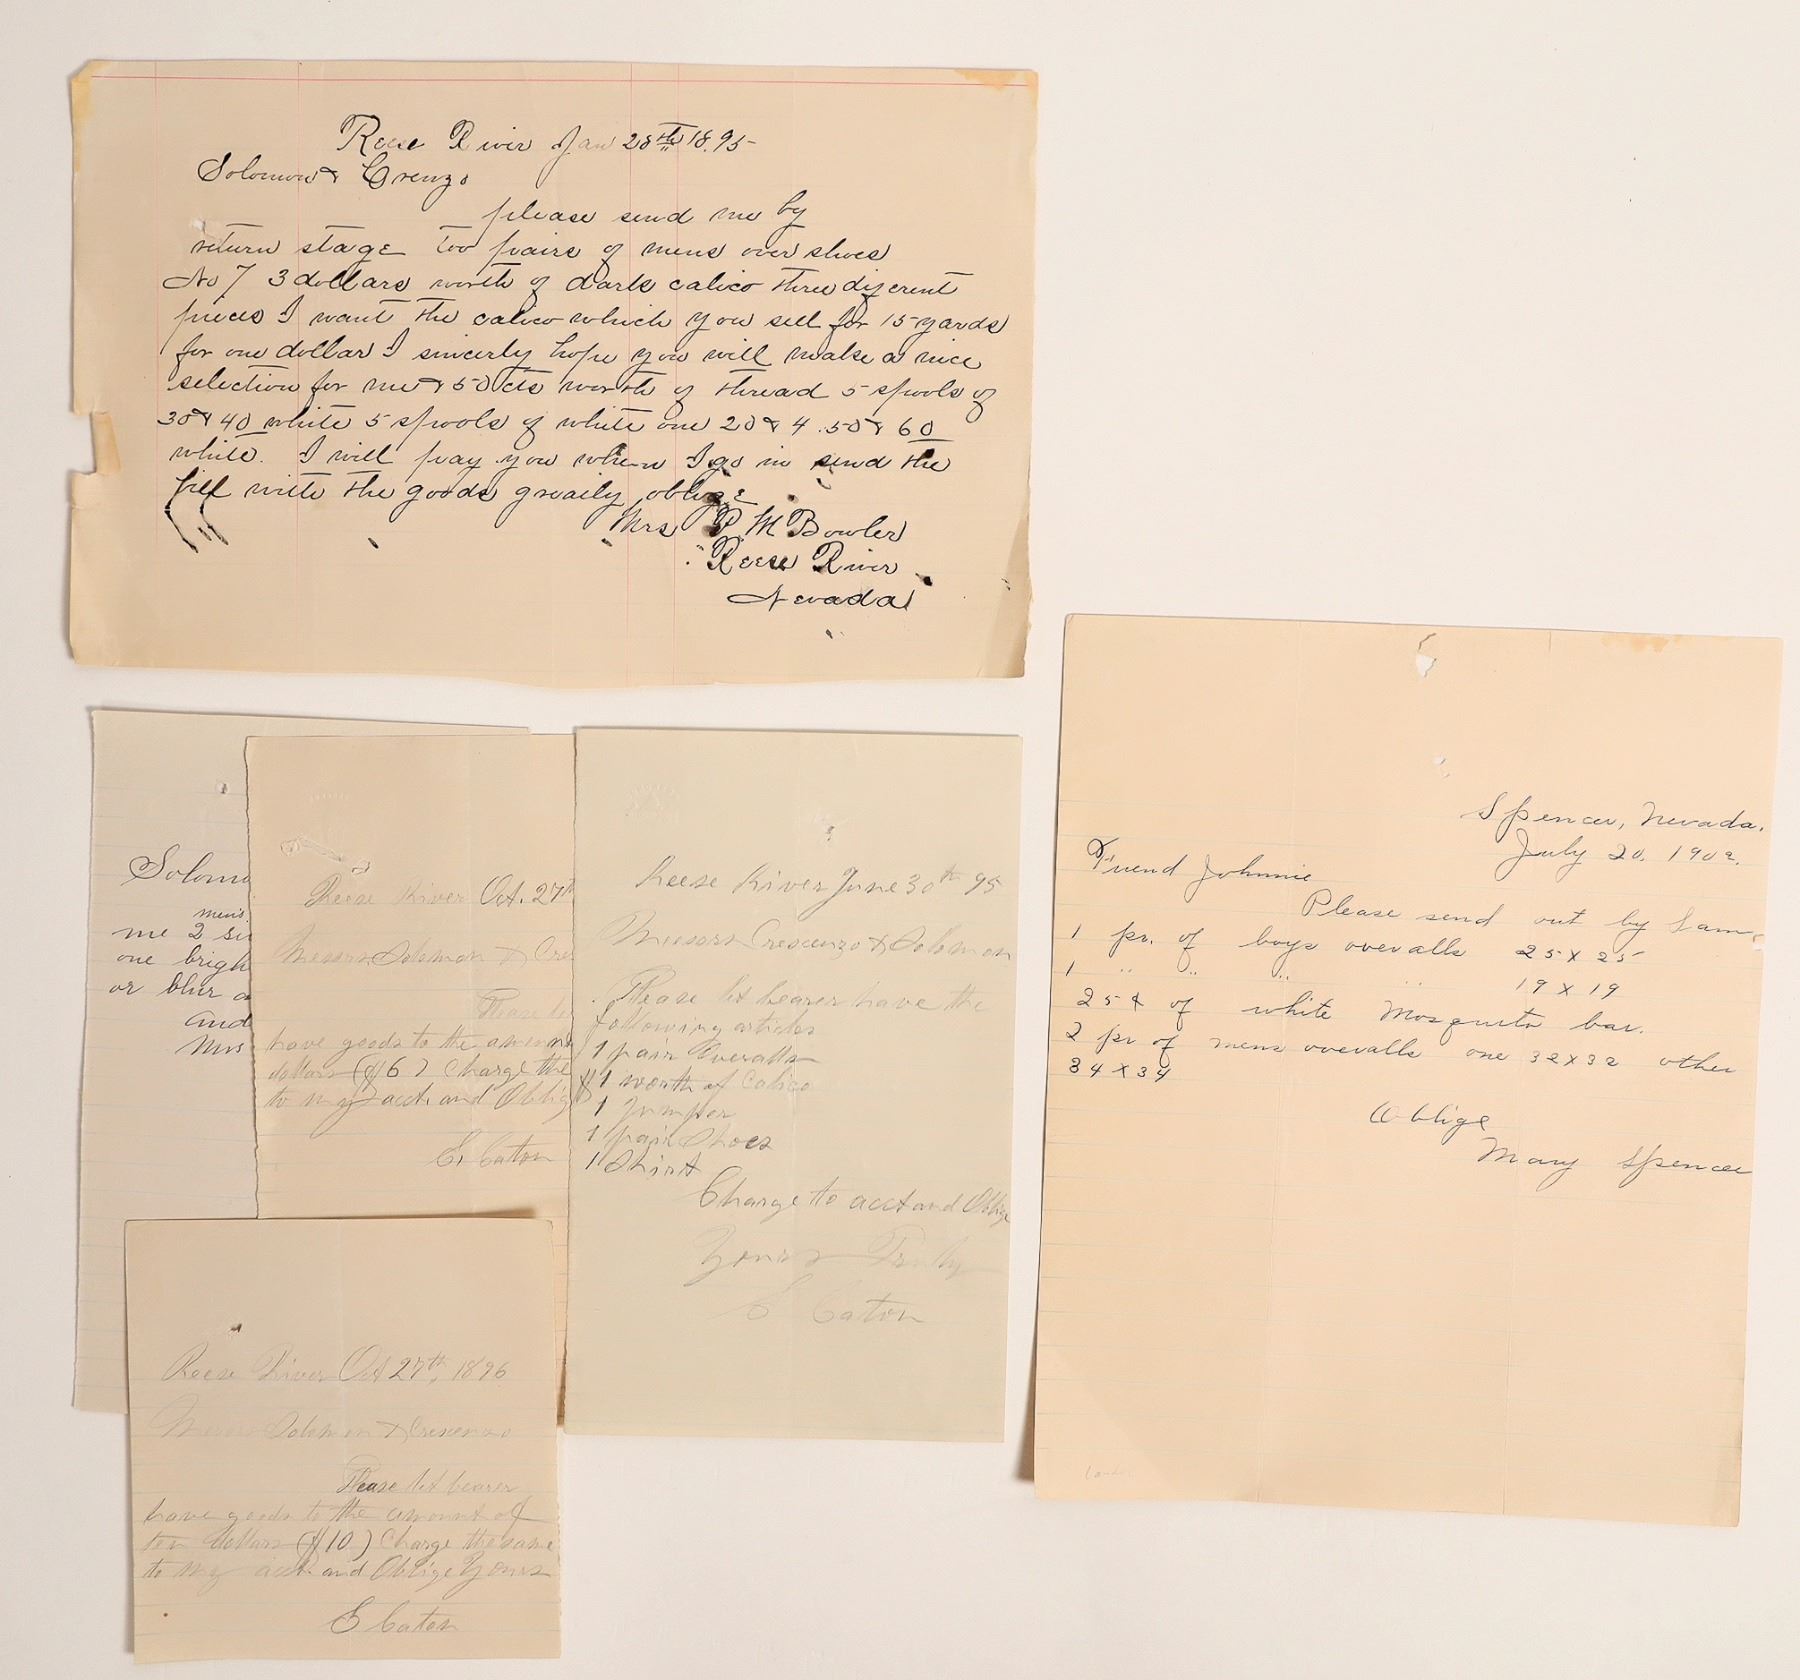 Reese River Jan 28th 18.95-
Solomon & Crenzo
please send me by
return stage too pairs of mens over shoes
No 7 3 dollars worth of dark calico three diferent
pieces I want the calico which you sell for 15 yards
for one dollar I sincerly hope you will make a nice
selection for me & 50 cts worth of thread 5 spools of
30 & 40 white 5 spools of white one 20 & 4 . 50 & 60
white. I will pay you when I go in send the
bill with the goods greaily oblige
Mrs P. M Bowler
Reese River
Nevada
Solomo
mens
me 2 su
one brigh
or blur a
and
Mrs
Reese River Oct. 27th
Messrs Solomon & Cres
Please let
have goods to the amount
dollars ($6) Charge the
to my acct. and Oblig
E. Caton
Reese River June 30th 95
Messrs Crescenzo & Solomon
Please let bearer have the
following articles
1 pair Overalls
$1 worth of Calico
1 Jumper
1 pair Shoes
1 Shirt
Charge to acct and Oblige
Yours Truly
E Caton
Reese River Oct 27th, 1896
Messrs Solomon & Crescenzo
Please let bearer
have goods to the amount of
ten dollars ($10) Charge the same
to my acct. and Oblige Yours
E Caton
Spencer, Nevada.
July 20, 1902.
Friend Johnnie
Please send out by Sam
1 pr. of boys overalls 25 x 25
1 " " " " 19 x 19
25¢ of white Mosquito bar.
2 pr of mens overalls one 32 x 32 other
34 x 34
Oblige
Mary Spencer